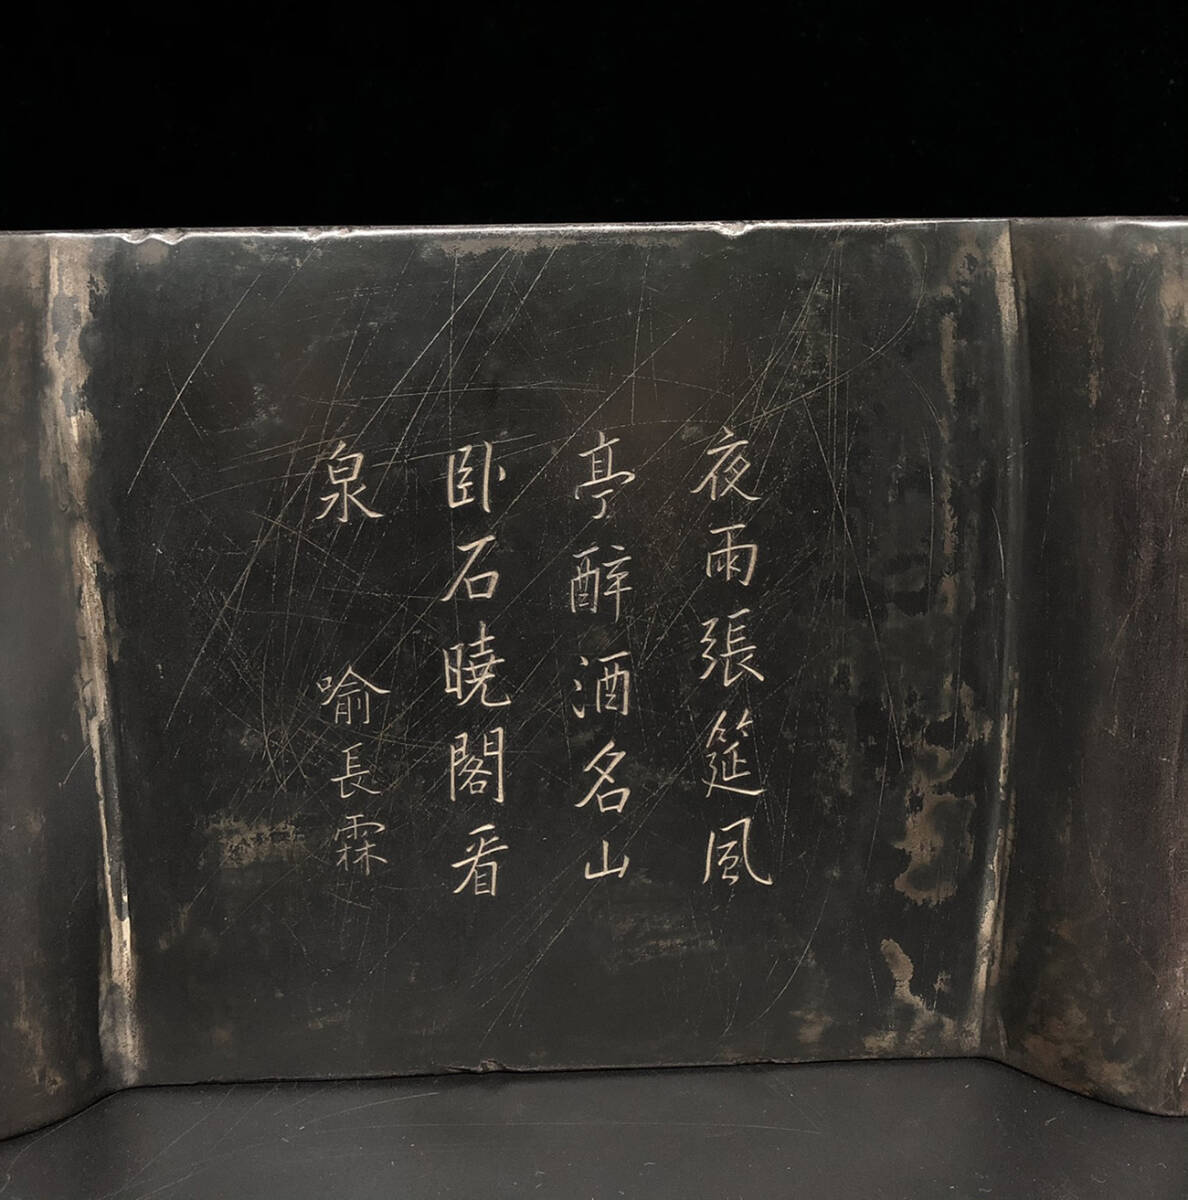 夜雨張筵風
亭醉酒名山
卧石曉閣看
泉
喻長霖